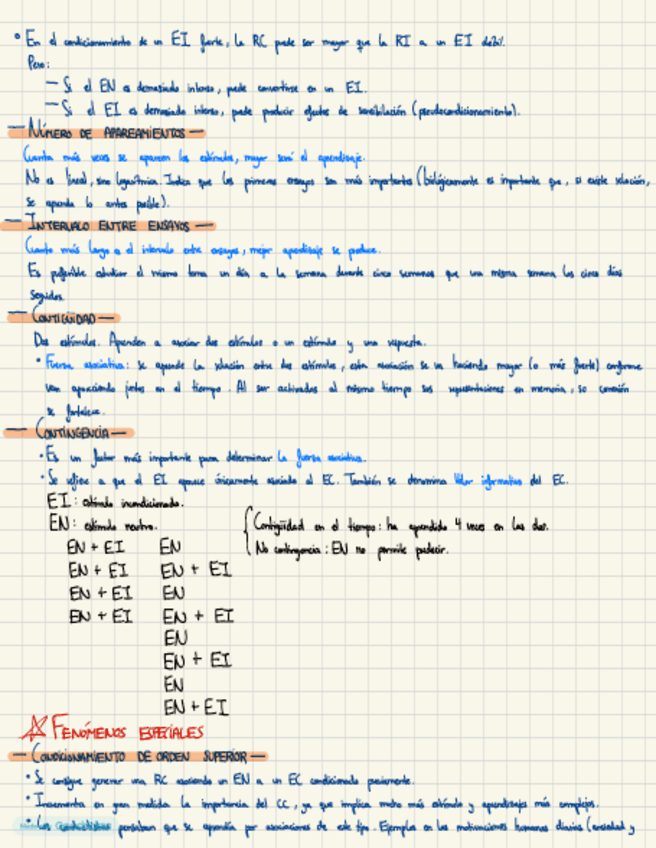 • En el condicionamiento de un EI fuerte, la RC puede ser mayor que la RI a un EI débil.
Pero:
— Si el EN es demasiado intenso, puede convertirse en un EI.
— Si el EI es demasiado intenso, puede producir efectos de sensibilación (pseudocondicionamiento).
— NÚMERO DE APAREAMIENTOS —
Cuanta más veces se aparecen los estímulos, mayor será el aprendizaje.
No es lineal, sino logarítmica. Indica que los primeros ensayos son más importantes (biológicamente es importante que, si existe relación,
se aprenda lo antes posible).
— INTERVALO ENTRE ENSAYOS —
Cuanto más largo es el intervalo entre ensayos, mejor aprendizaje se produce.
Es preferible estudiar el mismo tema un día a la semana durante cinco semanas que una misma semana los cinco días
seguidos.
— CONTIGÜIDAD —
Dos estímulos. Aprenden a asociar dos estímulos o un estímulo y una respuesta.
• Fuerza asociativa: se aprende la relación entre dos estímulos, esta asociación se va haciendo mayor (o más fuerte) conforme
van apareciendo juntos en el tiempo. Al ser activadas al mismo tiempo sus representaciones en memoria, su conexión
se fortalece.
— CONTINGENCIA —
• Es un factor más importante para determinar la fuerza asociativa.
• Se refiere a que el EI aparece únicamente asociado al EC. También se denomina Valor informativo del EC.
EI: estímulo incondicionado.
EN: estímulo neutro.
Contigüidad en el tiempo: ha aprendido 4 veces en las dos.
No contingencia: EN no permite predecir.
EN + EI EN
EN + EI EN + EI
EN + EI EN
EN + EI EN + EI
EN
EN + EI
EN
EN + EI
FENÓMENOS ESPECIALES
— CONDICIONAMIENTO DE ORDEN SUPERIOR —
• Se consigue generar una RC asociando un EN a un EC condicionado previamente.
• Incrementa en gran medida la importancia del CC, ya que implica mucho más estímulo y aprendizajes más complejos.
• Los conductistas pensaban que se aprendía por asociaciones de este tipo. Ejemplos en las motivaciones humanas diarias (ansiedad y